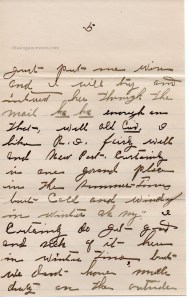 5
just put me wise
and I will try and
intend her through the
mail to be enough on
that, well old
like R.I. fairly well
and New Port. Certainly
is one grand place
in the summer time
but Cold and windy
in winter oh my. I
Certainly do get
and sick of it here
in winter time, but
we don't have much
duty on the outside